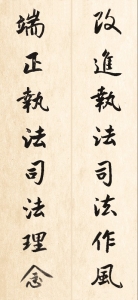 改進執法司法作風
端正執法司法理念